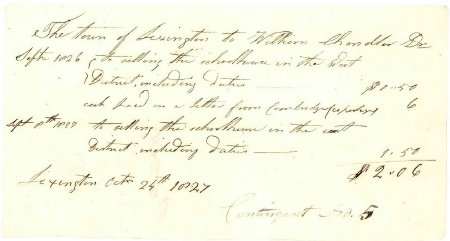 The town of Lexington to William Chandler Dr
Sept 1826 to selling the schoolhouse in the East
District, including duties $0.50
cash paid on a letter from Cambridge 6
Sept 1827 to selling the schoolhouse in the east
District, including duties 1.50
$2.06
Lexington Octr 25th 1827
Contingent No. 5